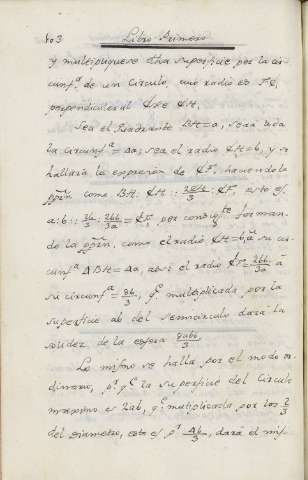 103 Libro Primero
y multipliquese dha superficie por la cir-
cunf.ª de un circulo, cuio radio es FC,
perpendicular al
Sea el Quadrante BH=a, será toda
la circunf.ª = 4a; sea el radio CH=b, y se
hallará la expresion de CF, haciendo la
pp̃ñ como BH. CH ::
a:b::
do la pp̃ñ, como el radio CH=b, á su cir-
cunf.ª ABH=4a, assi el radio CF = 2bb/3a á
su circunf.ª = 8b/3, q.e multiplicada por la
superficie ab del semicirculo dará la
solidez de la esfera 8abb/3.
Lo mismo se halla por el modo or-
dinario, p.r q.e la superficie del Circulo
maximo es 2ab, q.e multiplicada por los 2/3
del diametro, esto es p.r 4b/3, dará el mis-